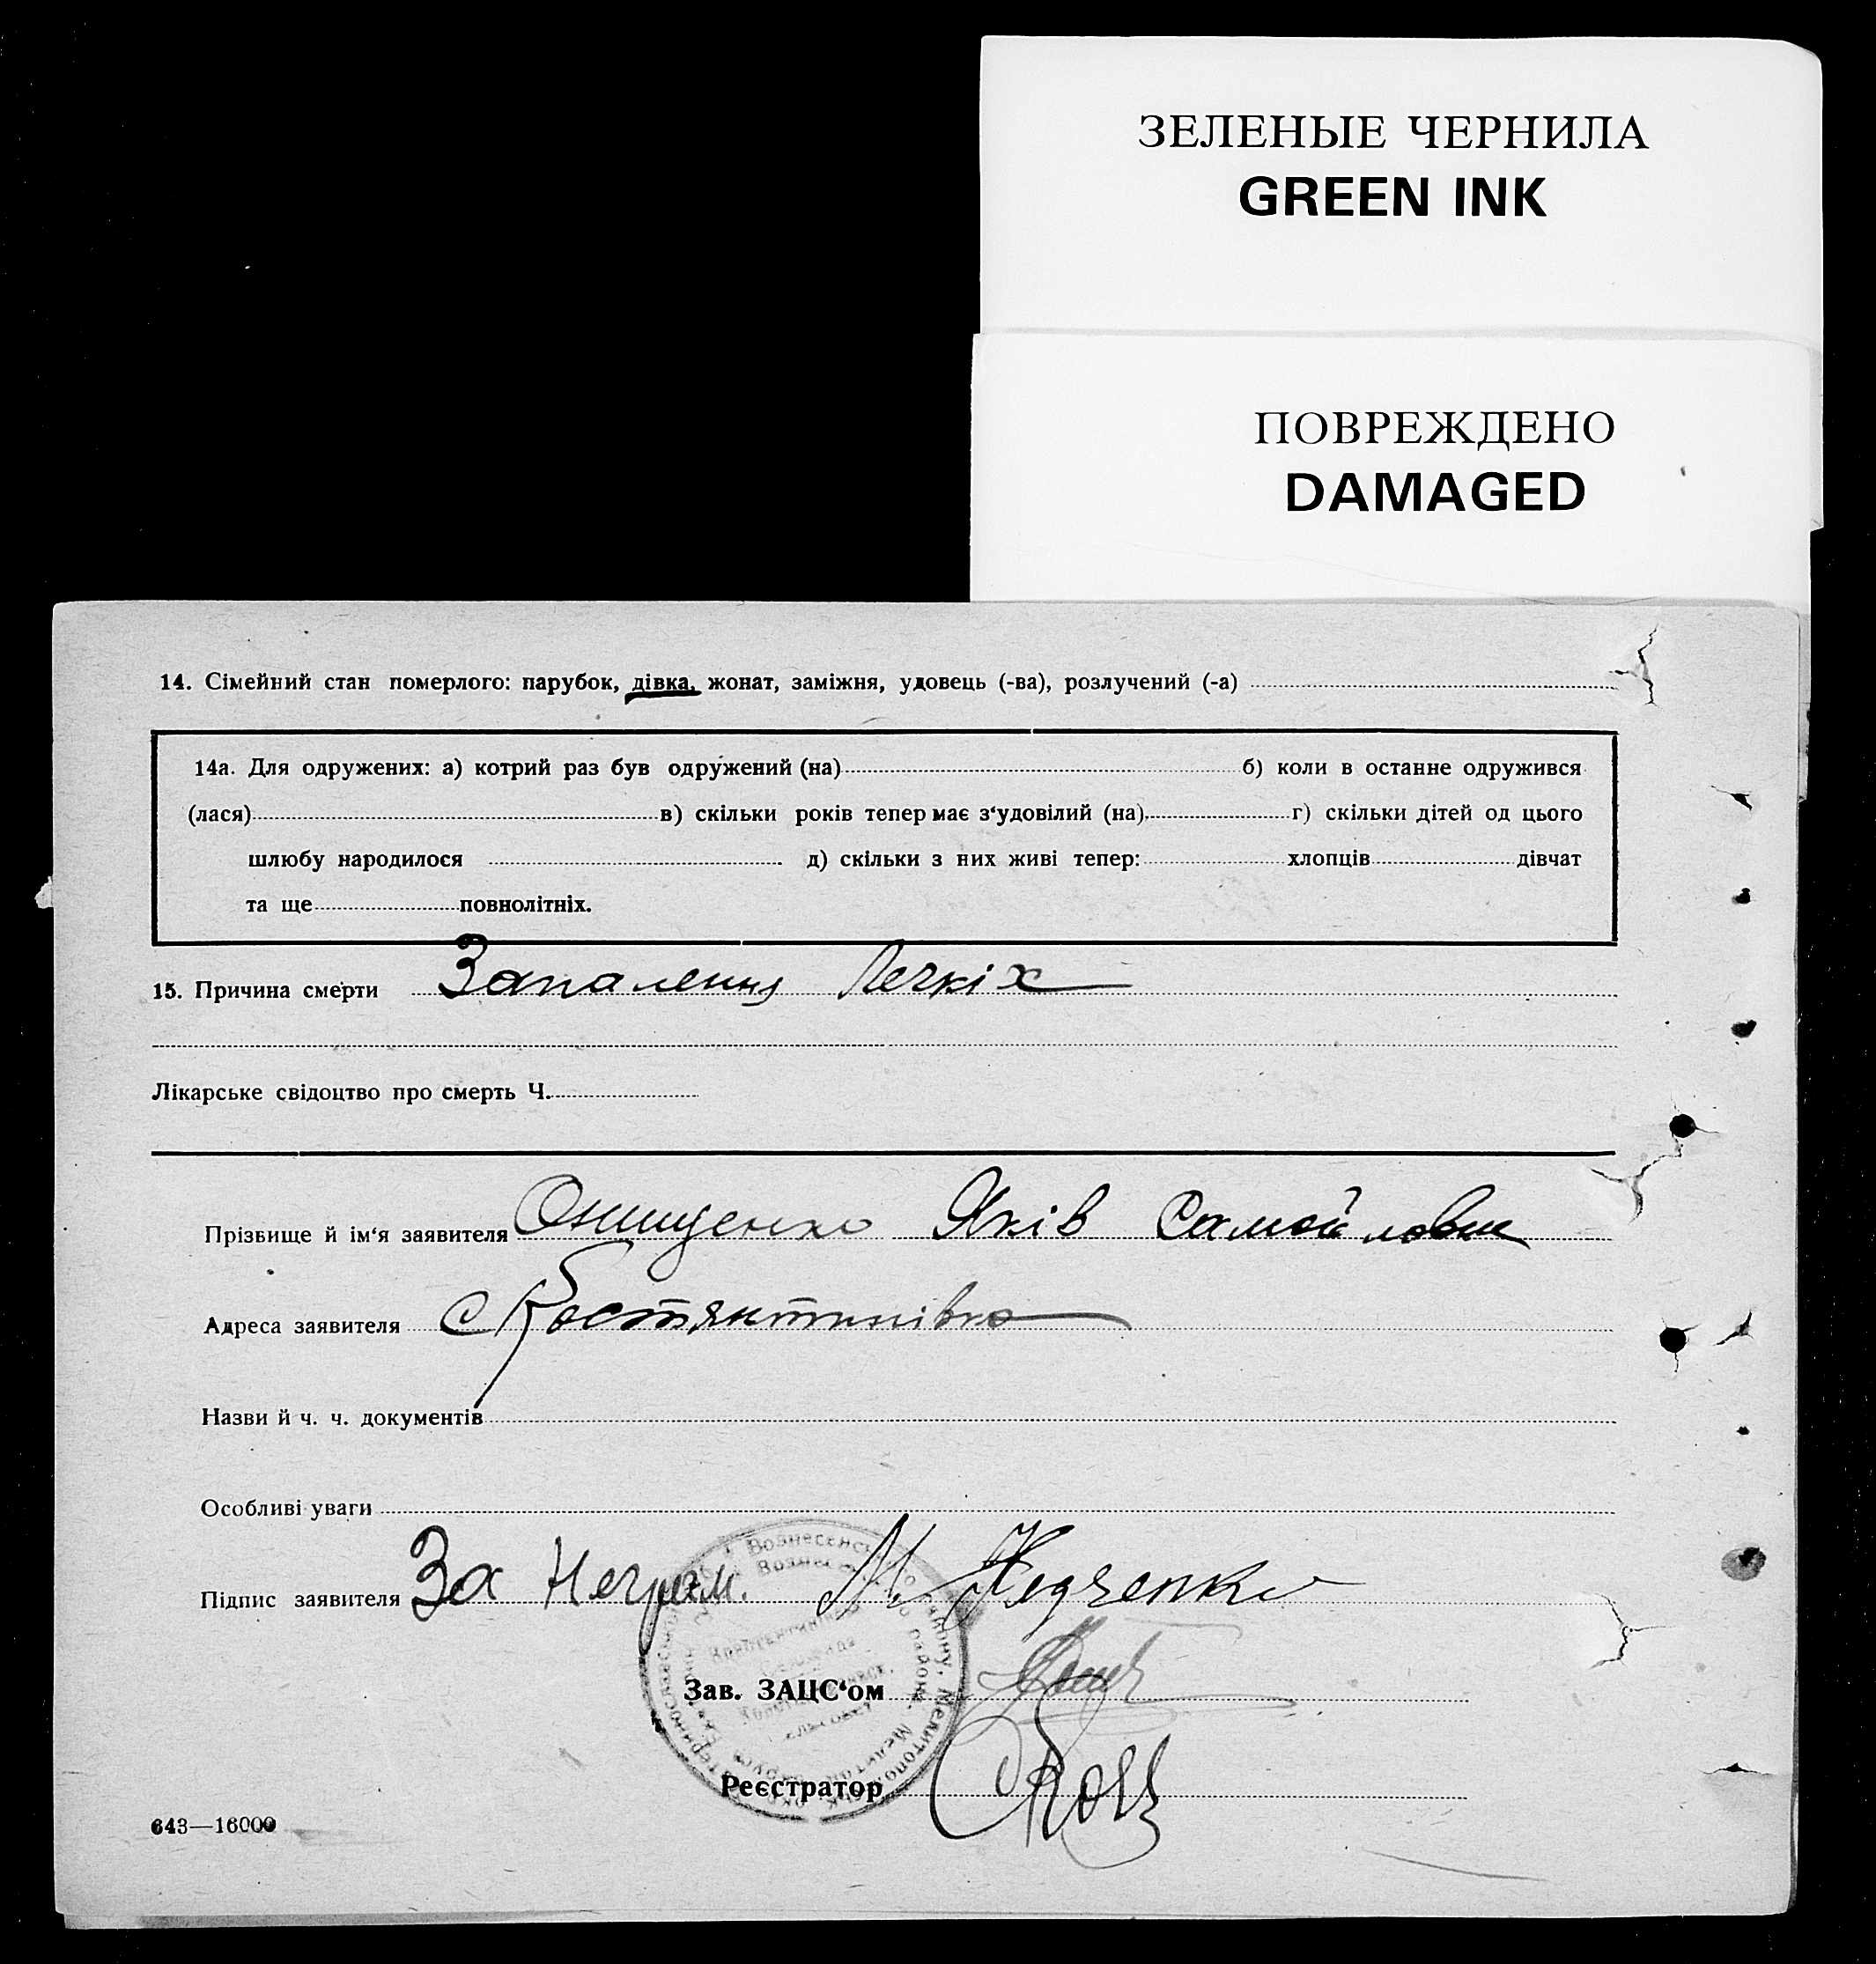 ЗЕЛЕНЫЕ ЧЕРНИЛА
GREEN INK
ПОВРЕЖДЕНО
DAMAGED
14. Сімейний стан померлого: парубок, дівка, жонат, заміжня, удовець (-ва), розлучений (-а)
14а. Для одружених: а) котрий раз був одружений (на) б) коли в останне одружився
(лася) в) скільки років тепер має з'удовілий (на) г) скільки дітей од цього
шлюбу народилося д) скільки з них живі тепер: хлопців дівчат
та ще повнолітніх.
15. Причина смерти Запалення Легкіх
Лікарське свідоцтво про смерть Ч.
Прізвище й ім'я заявителя Онищенко Яків Самойлович
Адреса заявителя с Костянтинівка
Назви й ч. ч. документів
Особливі уваги
Підпис заявителя За Неграм. М.
Зав. ЗАЦС'ом
Реєстратор
643—16000